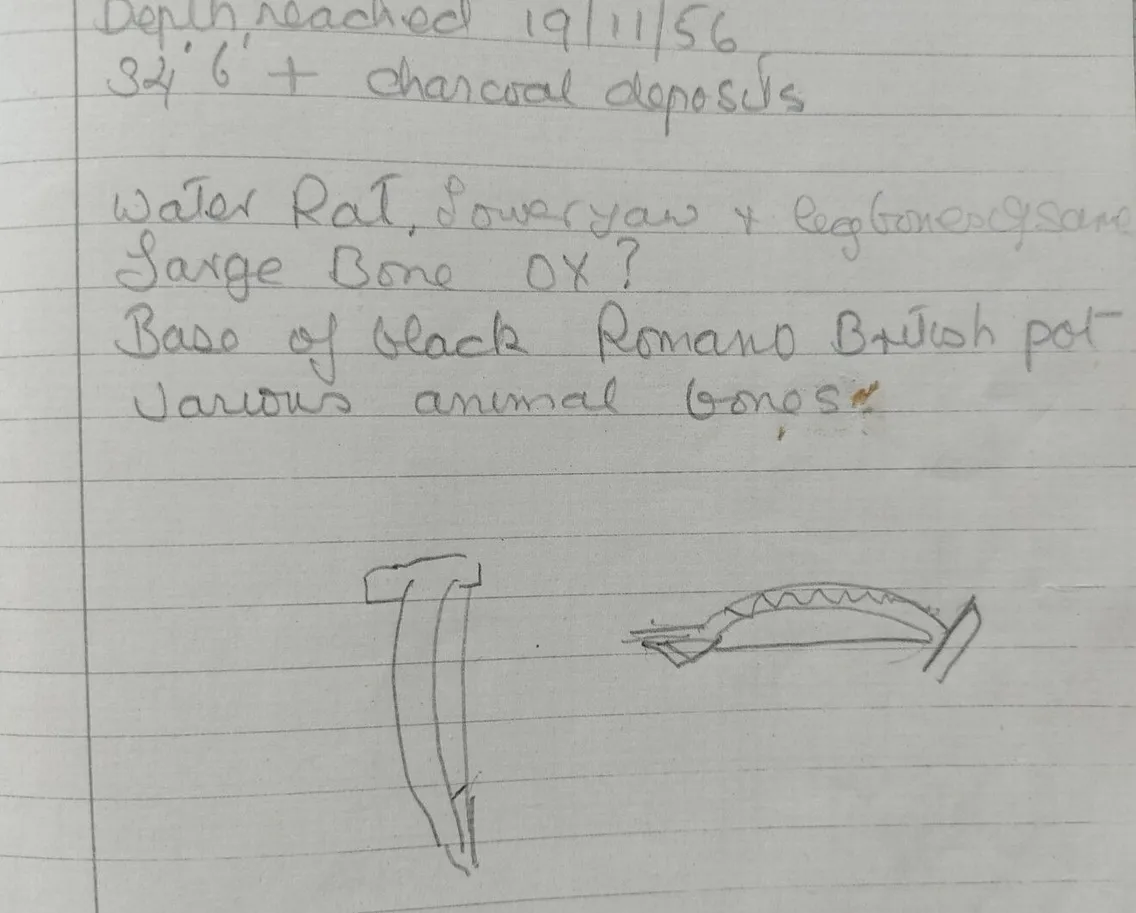 Depth reached 19/11/56
34' 6' + charcoal deposits
Water Rat, Lower jaw + leg bones of same
Large Bone OX?
Base of black Romano British pot
Various animal bones